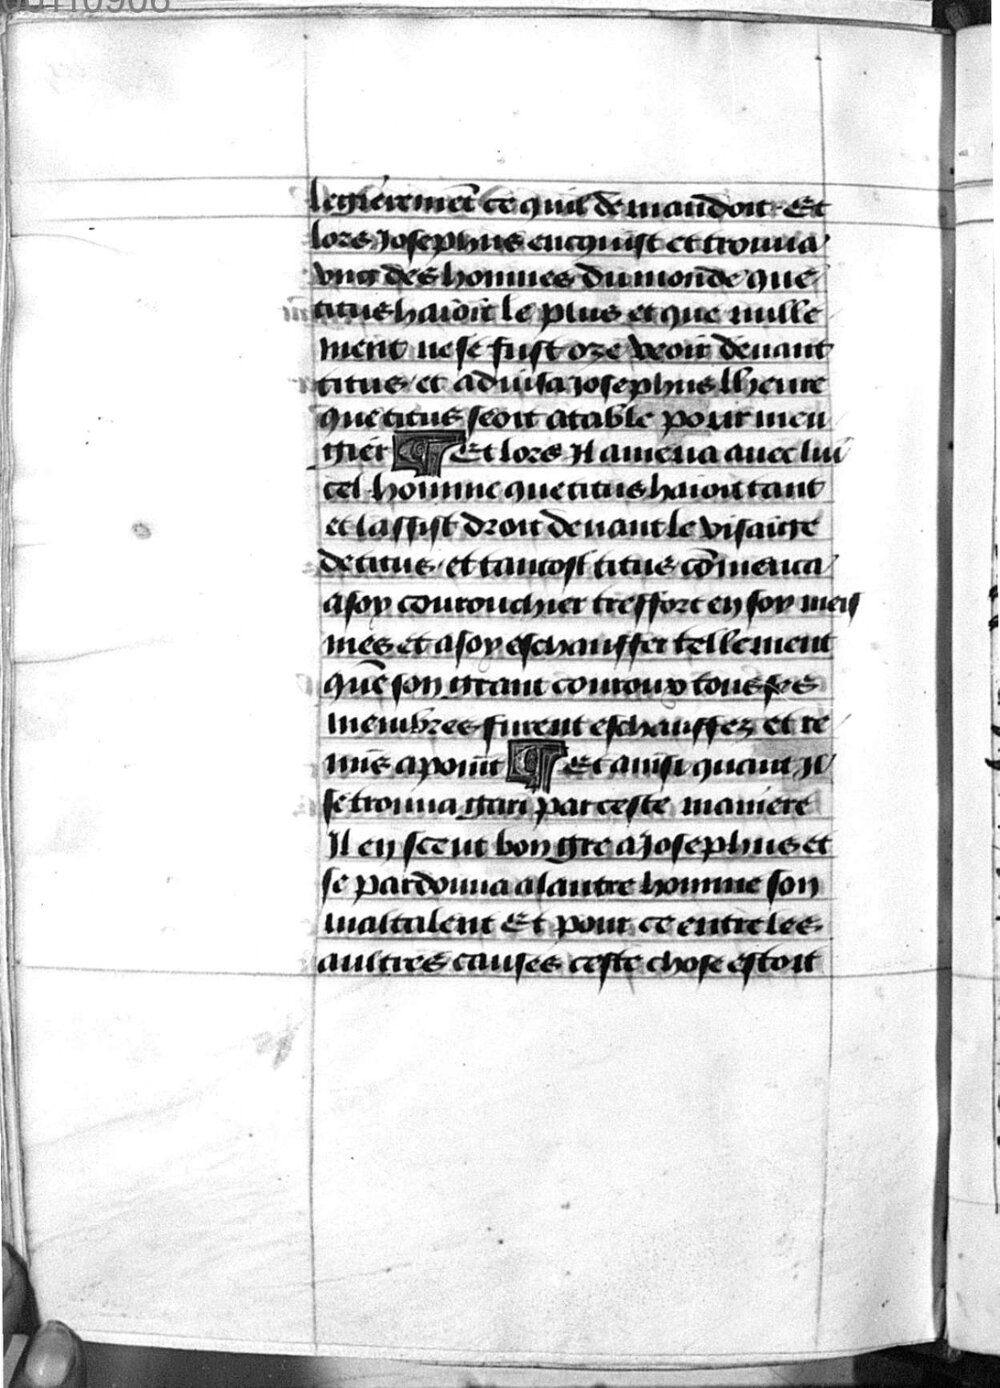 legierement ce quil demandoit. Et
lors Josephus encquist et trouua
vng des hommes du monde que
titus haioit le plus et que nulle
ment ne se fust oze veoir deuant
titus / et aduisa Josephus lheure
que titus seoit a table pour men
gier ¶ Et lors Il amena auec lui
cel homme que titus haioit tant
et lassist droit deuant le visaige
de titus / et tantost titus cōmenca
a soy courouchier tresfort en soy meis
mes et a soy eschauffer tellement
que son grant couroux tous ses
membres furent eschauffez et re
mis a point ¶ Et ainsi quant Il
se trouua gari par ceste maniere
Il en sceut bon gre a Josephus et
se pardonna a lautre homme son
maltalent Et pour ce entre les
aultres causes ceste chose estoit